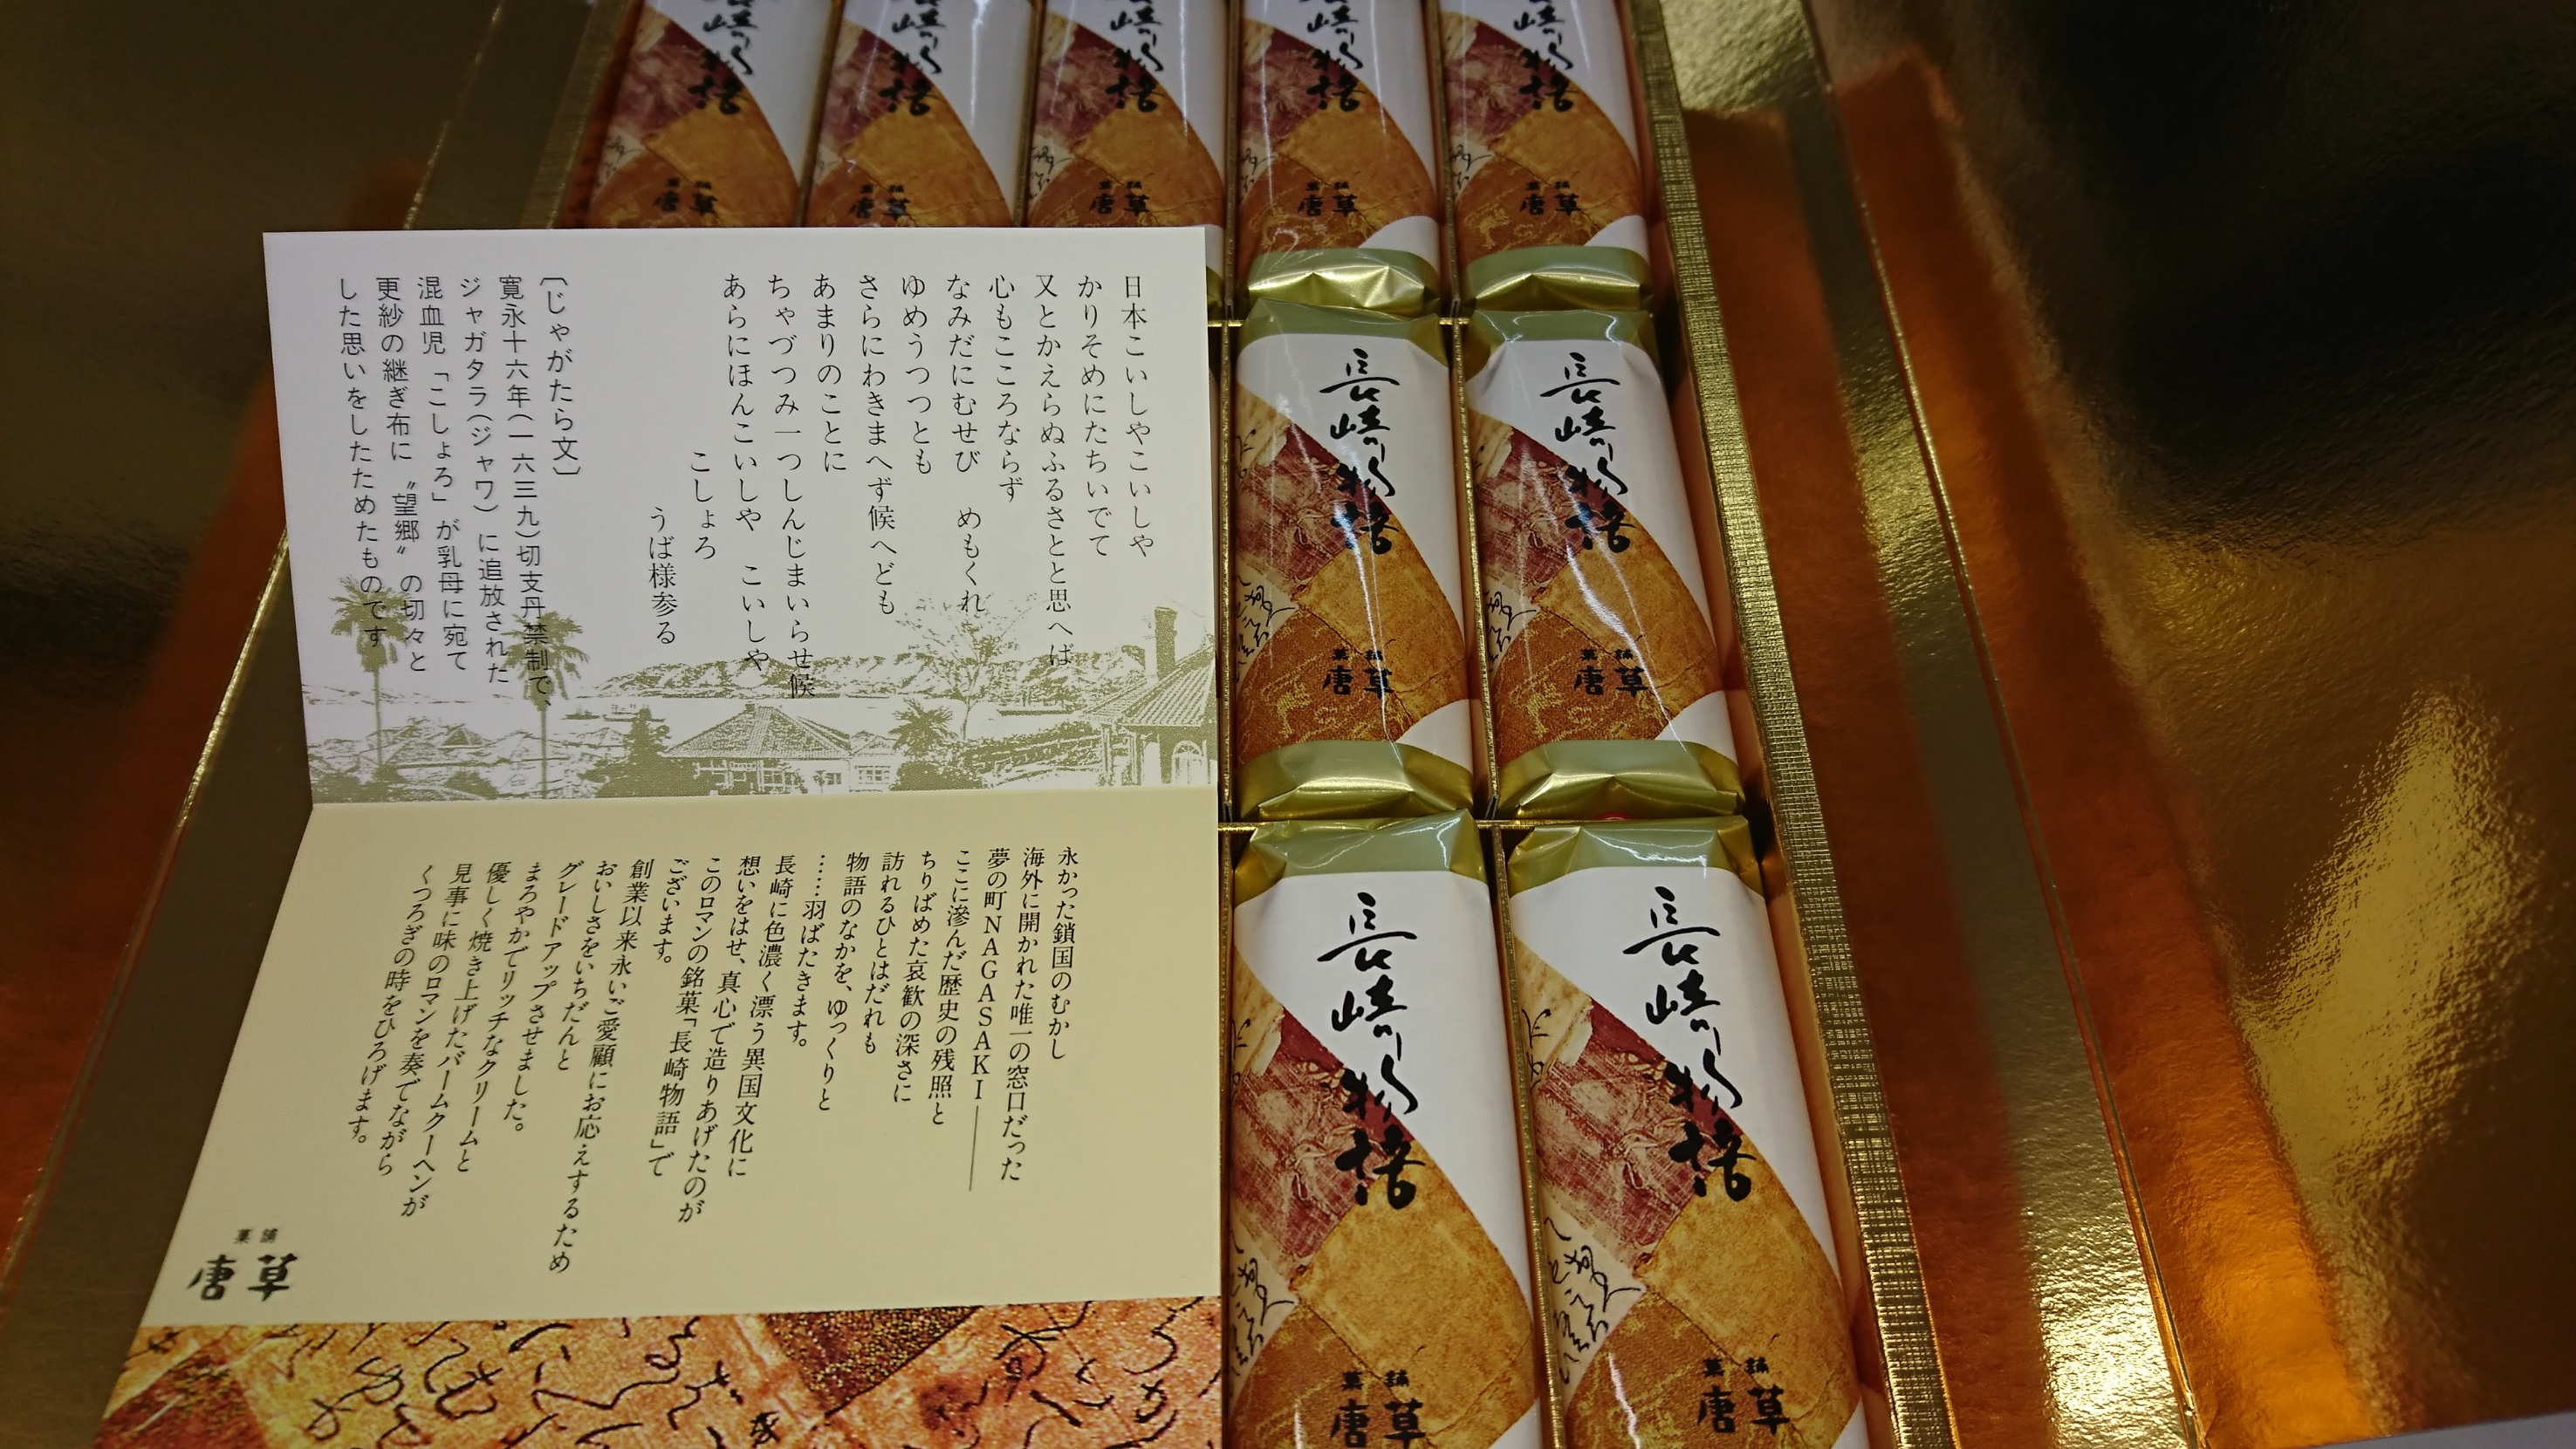 日本こいしやこいしや
かりそめにたちいでて
又とかえらぬふるさとと思へば
心もこころならず
なみだにむせび　めもくれ
ゆめうつつとも
さらにわきまへず候へども
あまりのことに
ちゃづつみ一つしんじまいらせ候
あらにほんこいしや　こいしや
こしょろ
うば様参る
〔じゃがたら文〕
寛永十六年(一六三九)切支丹禁制で、
ジャガタラ(ジャワ)に追放された
混血児「こしょろ」が乳母に宛て
更紗の継ぎ布に〝望郷〟の切々と
した思いをしたためたものです
永かった鎖国のむかし
海外に開かれた唯一の窓口だった
夢の町NAGASAKI――
ここに滲んだ歴史の残照と
ちりばめた哀歓の深さに
訪れるひとはだれも
物語のなかを、ゆっくりと
……羽ばたきます。
長崎に色濃く漂う異国文化に
想いをはせ、真心で造りあげたのが
このロマンの銘菓「長崎物語」で
ございます。
創業以来永いご愛顧にお応えするため
おいしさをいちだんと
グレードアップさせました。
まろやかでリッチなクリームと
優しく焼き上げたバームクーヘンが
見事に味のロマンを奏でながら
くつろぎの時をひろげます。
菓舗
唐草
長崎物語
菓舗
唐草
長崎物語
菓舗
唐草
長崎物語
菓舗
唐草
長崎物語
菓舗
唐草
崎物語
菓舗
唐草
崎物語
菓舗
唐草
崎物語
菓舗
唐草
崎物語
菓舗
唐草
崎物語
菓舗
唐草